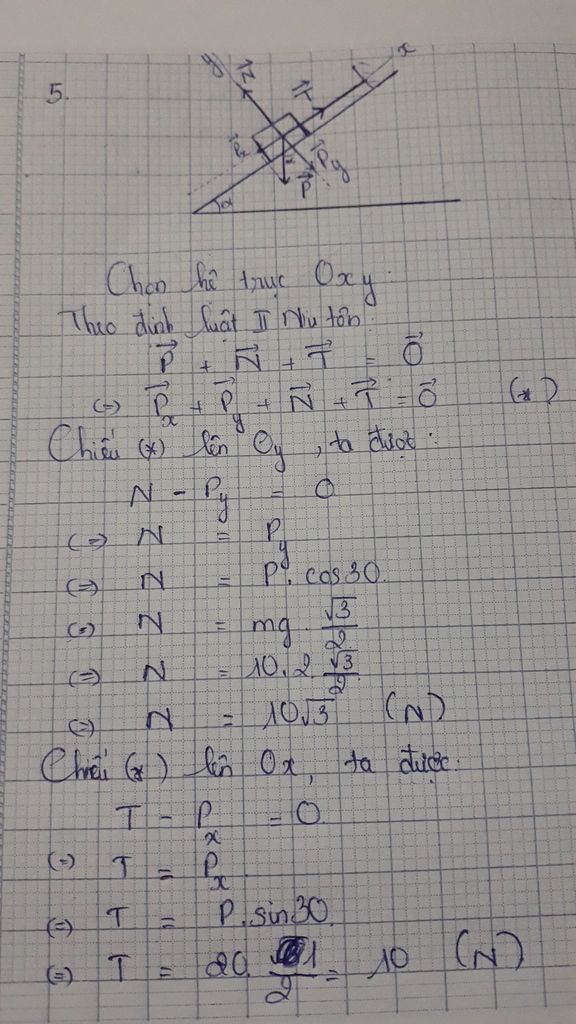 5.
y
N
T
x
Px
Py
P
α
Chọn hệ trục Oxy.
Theo định luật II Niu tôn
P + N + T = 0
(=) Px + Py + N + T = 0 (*)
Chiếu (*) lên Oy, ta được:
N - Py = 0
(=) N = Py
(=) N = P. cos30.
(=) N = mg √3/2
(=) N = 10.2. √3/2
(=) N = 10√3 (N)
Chiếu (*) lên Ox, ta được:
T - Px = 0.
(=) T = Px
(=) T = P. sin30.
(=) T = 20. 1/2 = 10 (N)